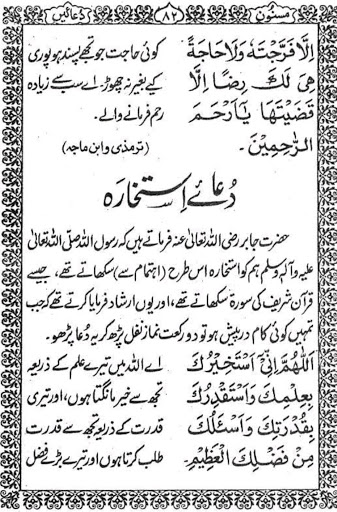 مسنون ۸۲ دعائیں
اِلَّا فَرَّجْتَهٗ وَلَا حَاجَةً کوئی حاجت جو تجھے پسند ہو پوری
هِیَ لَكَ رِضًا اِلَّا کیے بغیر نہ چھوڑ۔ اے سب سے زیادہ
قَضَيْتَهَا يَا اَرْحَمَ رحم فرمانے والے۔
الرّٰحِمِيْنَ۔ (ترمذی و ابن ماجہ)
دُعائے اِستخارَہ
حضرت جابر رضی اللہ تعالیٰ عنہ فرماتے ہیں کہ رسول اللہ صلی اللہ تعالیٰ
علیہ وآلہ وسلم ہم کو استخارہ اس طرح (اہتمام سے) سکھاتے تھے، جیسے
قرآن شریف کی سورۃ سکھاتے تھے، اور یوں ارشاد فرمایا کرتے تھے کہ جب
تمہیں کوئی کام درپیش ہو تو دو رکعت نماز نفل پڑھ کر یہ دُعا پڑھو۔
اَللّٰهُمَّ اِنِّیْ اَسْتَخِيْرُكَ اے اللہ میں تیرے علم کے ذریعہ
بِعِلْمِكَ وَاَسْتَقْدِرُكَ تجھ سے خیر مانگتا ہوں، اور تیری
بِقُدْرَتِكَ وَاَسْئَلُكَ قدرت کے ذریعہ تجھ سے قدرت
مِنْ فَضْلِكَ الْعَظِيْمِ۔ طلب کرتا ہوں اور تیرے بڑے فضل